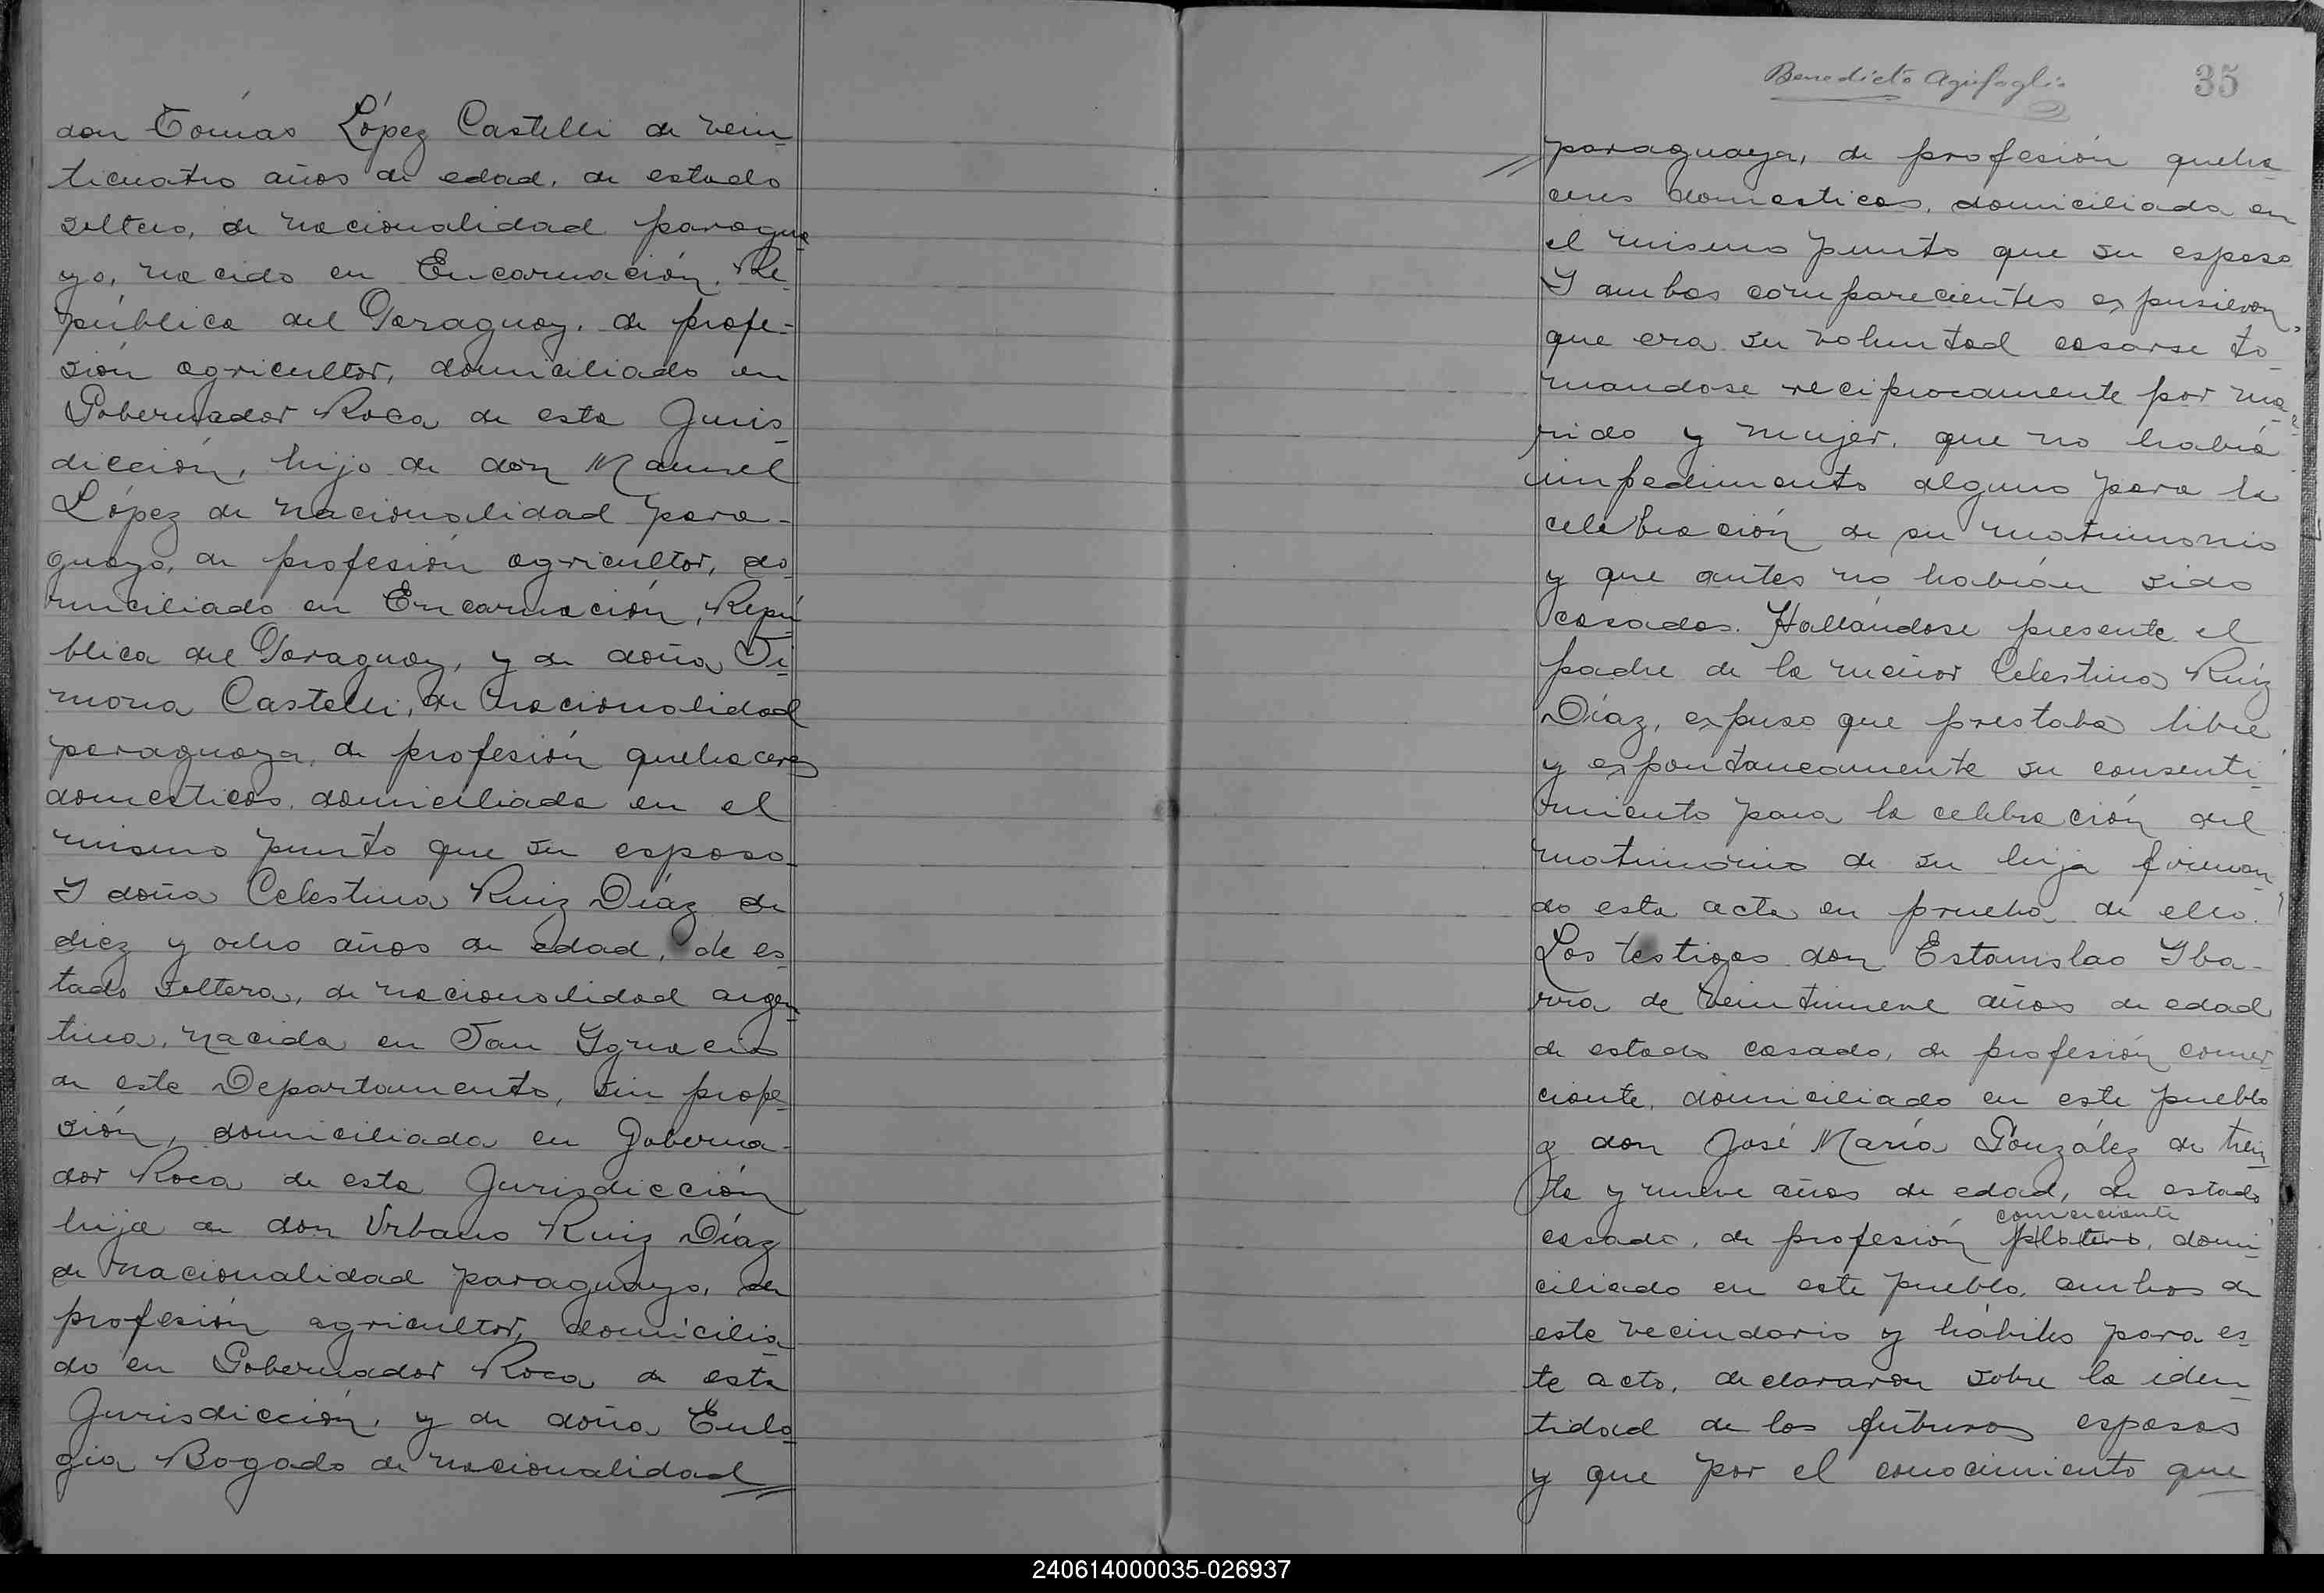 don Tomás López Castelli de vein-
ticuatro años de edad, de estado
soltero, de nacionalidad paragua-
yo, nacido en Encarnación, Re-
pública del Paraguay, de profe-
sión agricultor, domiciliado en
Gobernador Roca de esta Juris-
dicción, hijo de don Manuel
López de nacionalidad para-
guayo, de profesión agricultor, do-
miciliado en Encarnación, Repú-
blica del Paraguay, y de doña
Castelli, de nacionalidad
paraguaya, de profesión quehaceres
domesticos, domiciliada en el
mismo punto que su esposo-
Y doña Celestina Ruiz Díaz de
diez y ocho años de edad, de es-
tado soltera, de nacionalidad argen-
tina, nacida en San Ygnacio
de este Departamento, sin profe-
sión, domiciliada en Goberna-
dor Roca de esta Jurisdicción
hija de don Urbano Ruiz Díaz
de nacionalidad paraguayo, de
profesión agricultor, domicilia-
do en Gobernador Roca de esta
Jurisdicción, y de doña Eulo-
gia Bogado de nacionalidad
Benedicto
35
paraguaya, de profesión queha-
ceres domesticos, domiciliada en
el mismo punto que su esposo
Y ambos comparecientes expusieron,
que era su voluntad casarse to-
mandose reciprocamente por ma-
rido y mujer, que no había
impedimento alguno para la
celebración de su matrimonio
y que antes no habían sido
casados. Hallándose presente el
padre de la menor Celestina Ruíz
Díaz, expuso que prestaba libre
y expontaneamente su consenti-
miento para la celebración del
matrimonio de su hija firman-
do esta acta en prueba de ello.
Los testigos don Estanislao Yba-
rra de veintinueve años de edad
de estado casado, de profesión comer-
ciante, domiciliado en este pueblo
y don José María González de trein-
ta y nueve años de edad, de estado
comerciante
casado, de profesión platero, domi-
ciliado en este pueblo, ambos de
este vecindario y hábiles para es-
te acto, declararon sobre la iden-
tidad de los futuros esposos
y que por el conocimiento que
240614000035-026937